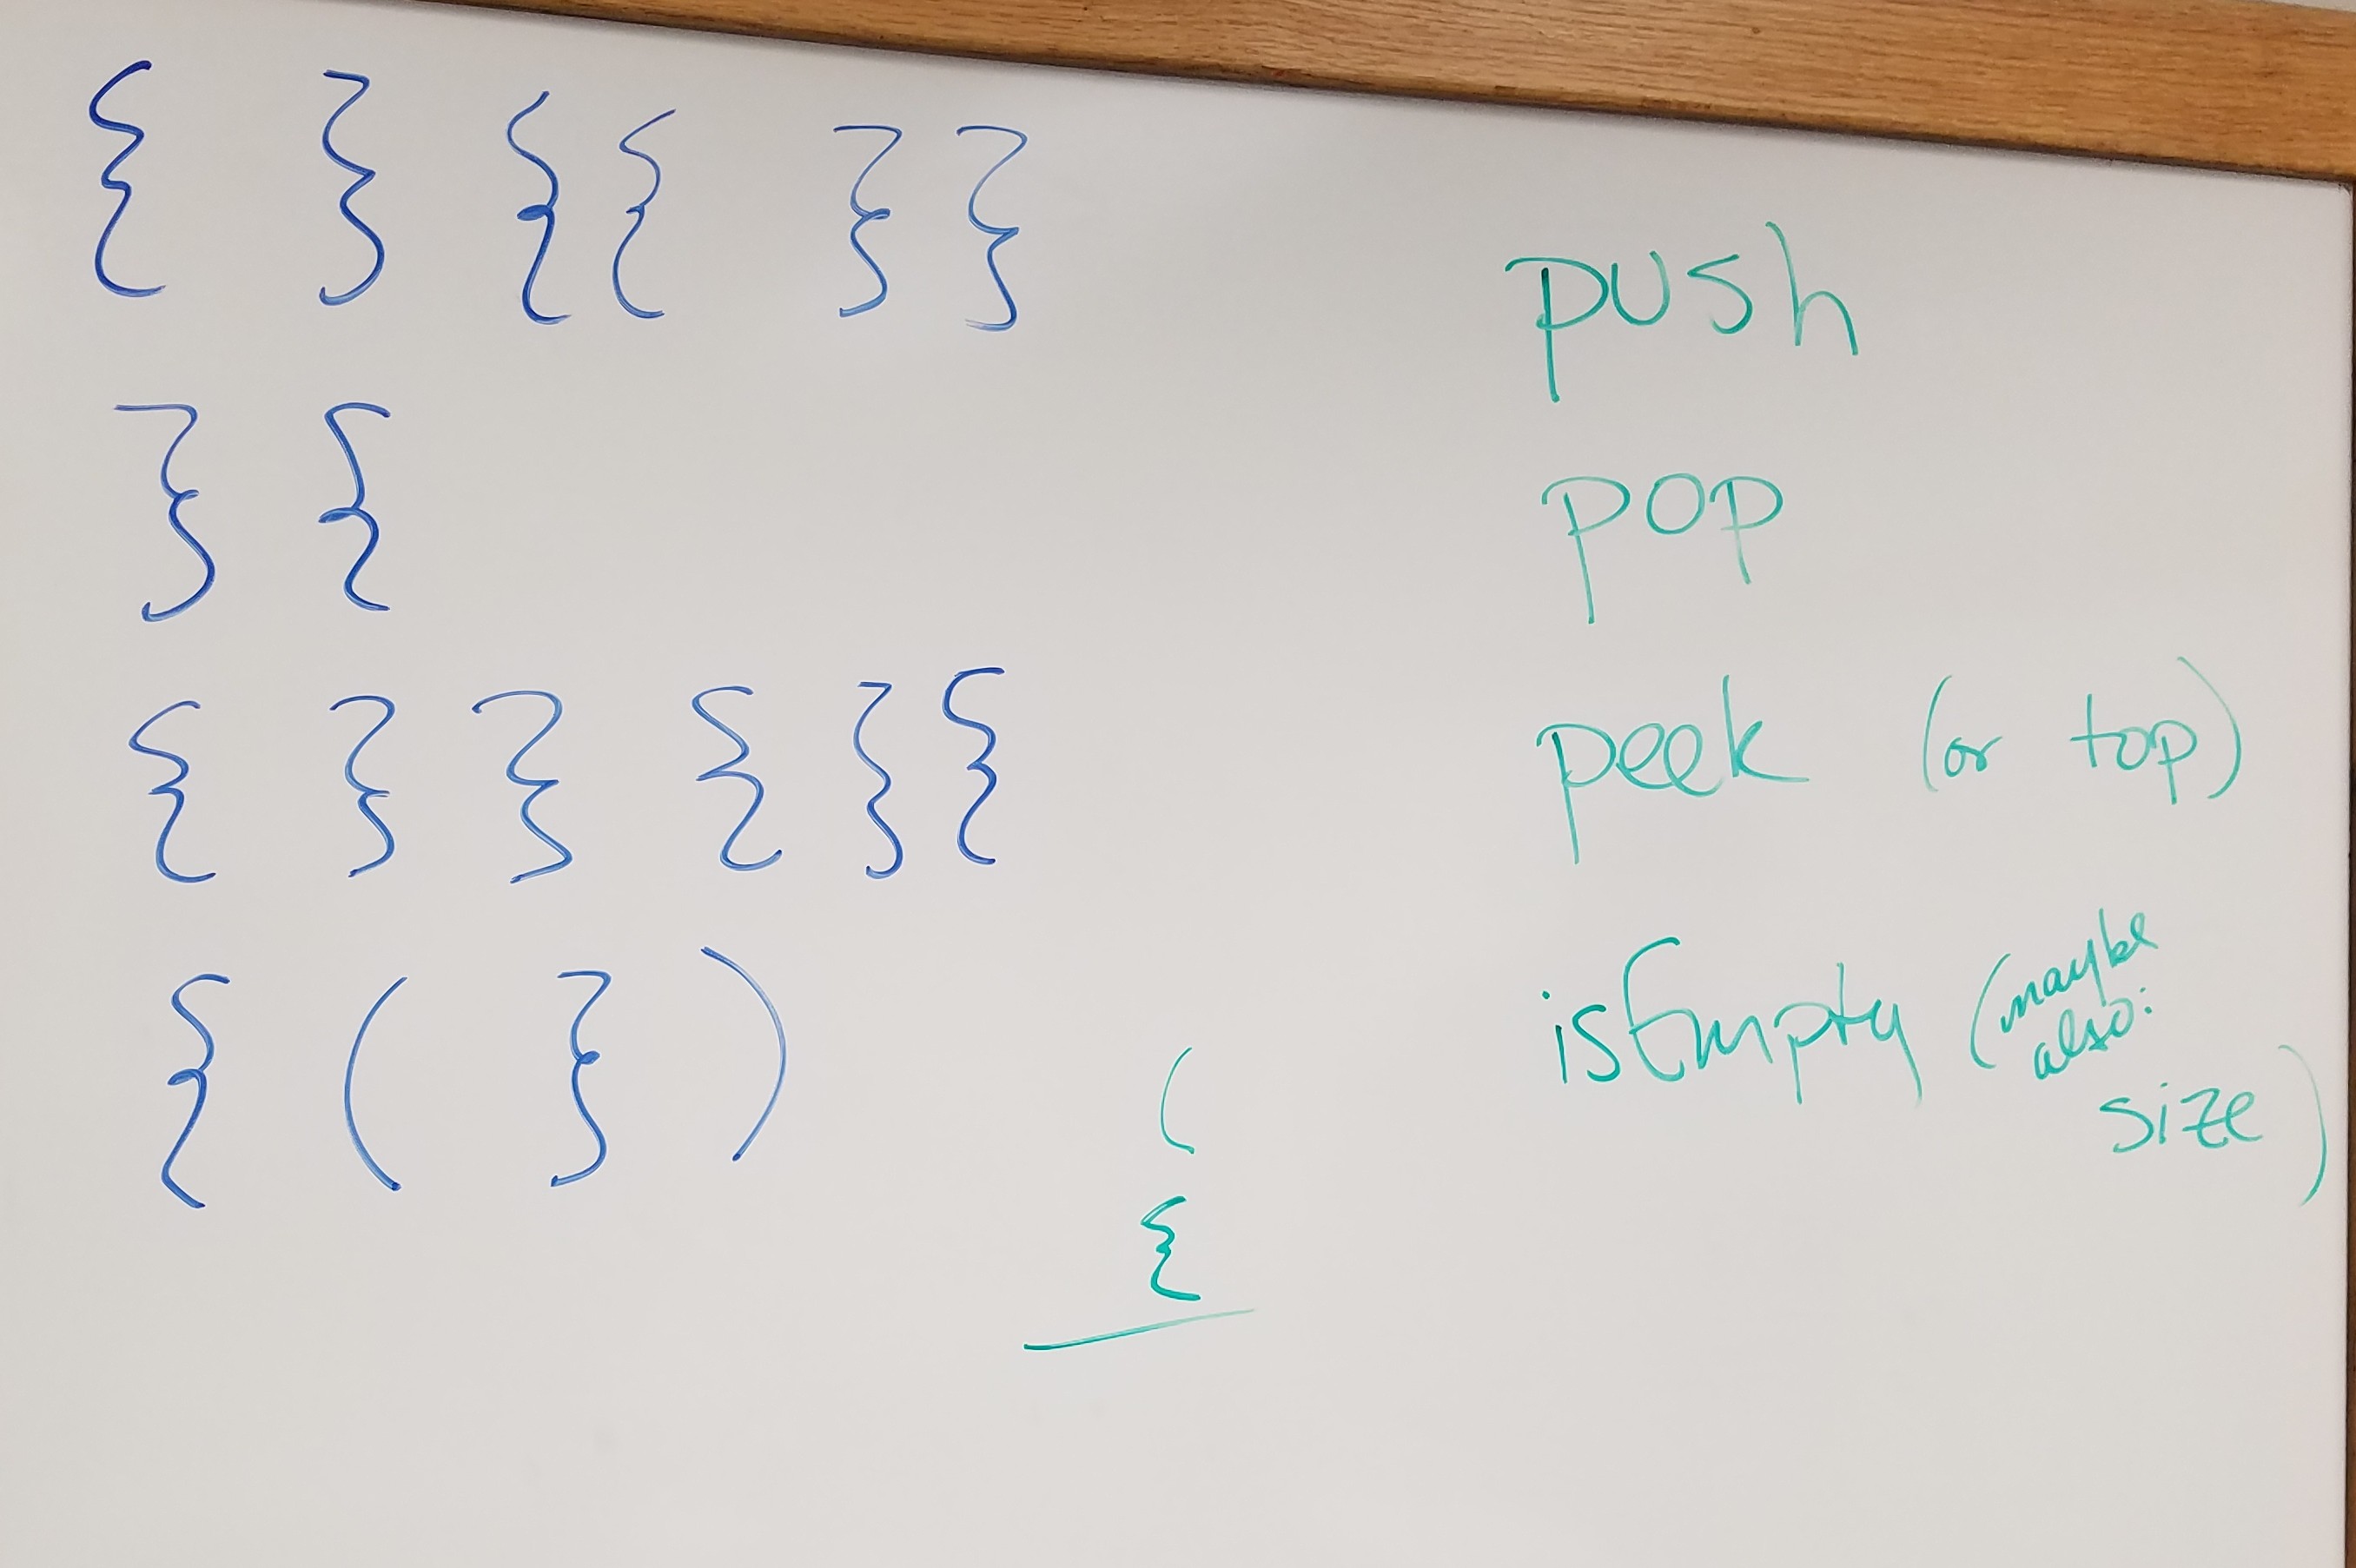 { } { { } }
} {
{ } } { } {
{ ( } )
(
{
push
pop
peek (or top)
isEmpty (maybe also: size)